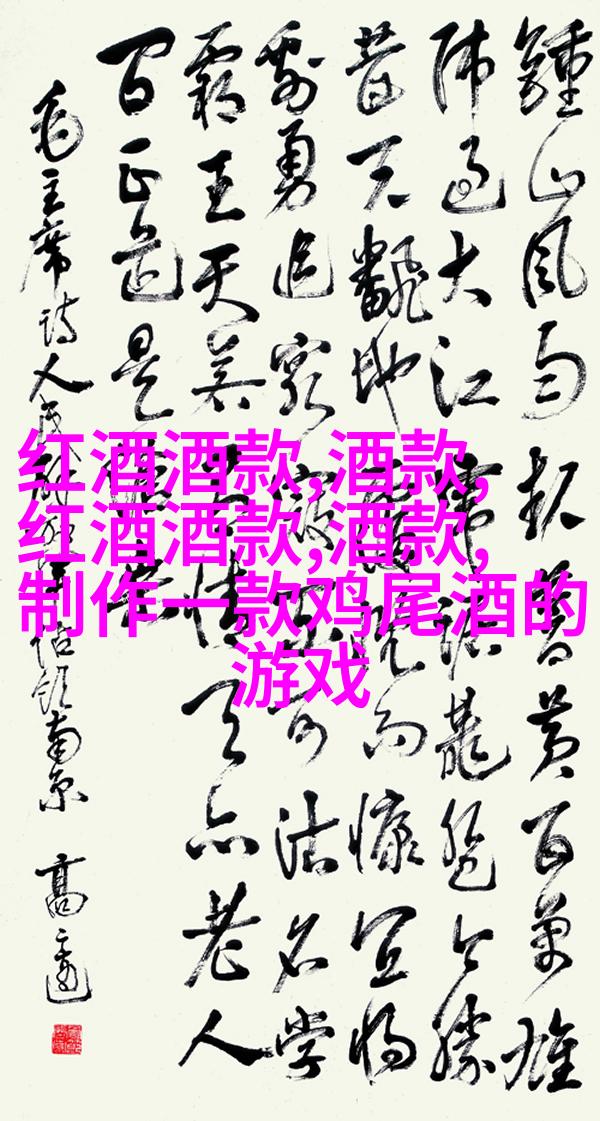 鍾山风雨起蒼黄百萬雄
师过大江虎踞龍盘今勝
昔天翻地覆慨而慷宜将
剩勇追穷寇不可沽名学
霸王天若有情天亦老人
间正道是滄桑
毛主席诗人民解放軍佔领南京
红酒酒款,酒款,
红酒酒款,酒款,
制作一款鸡尾酒的
游戏